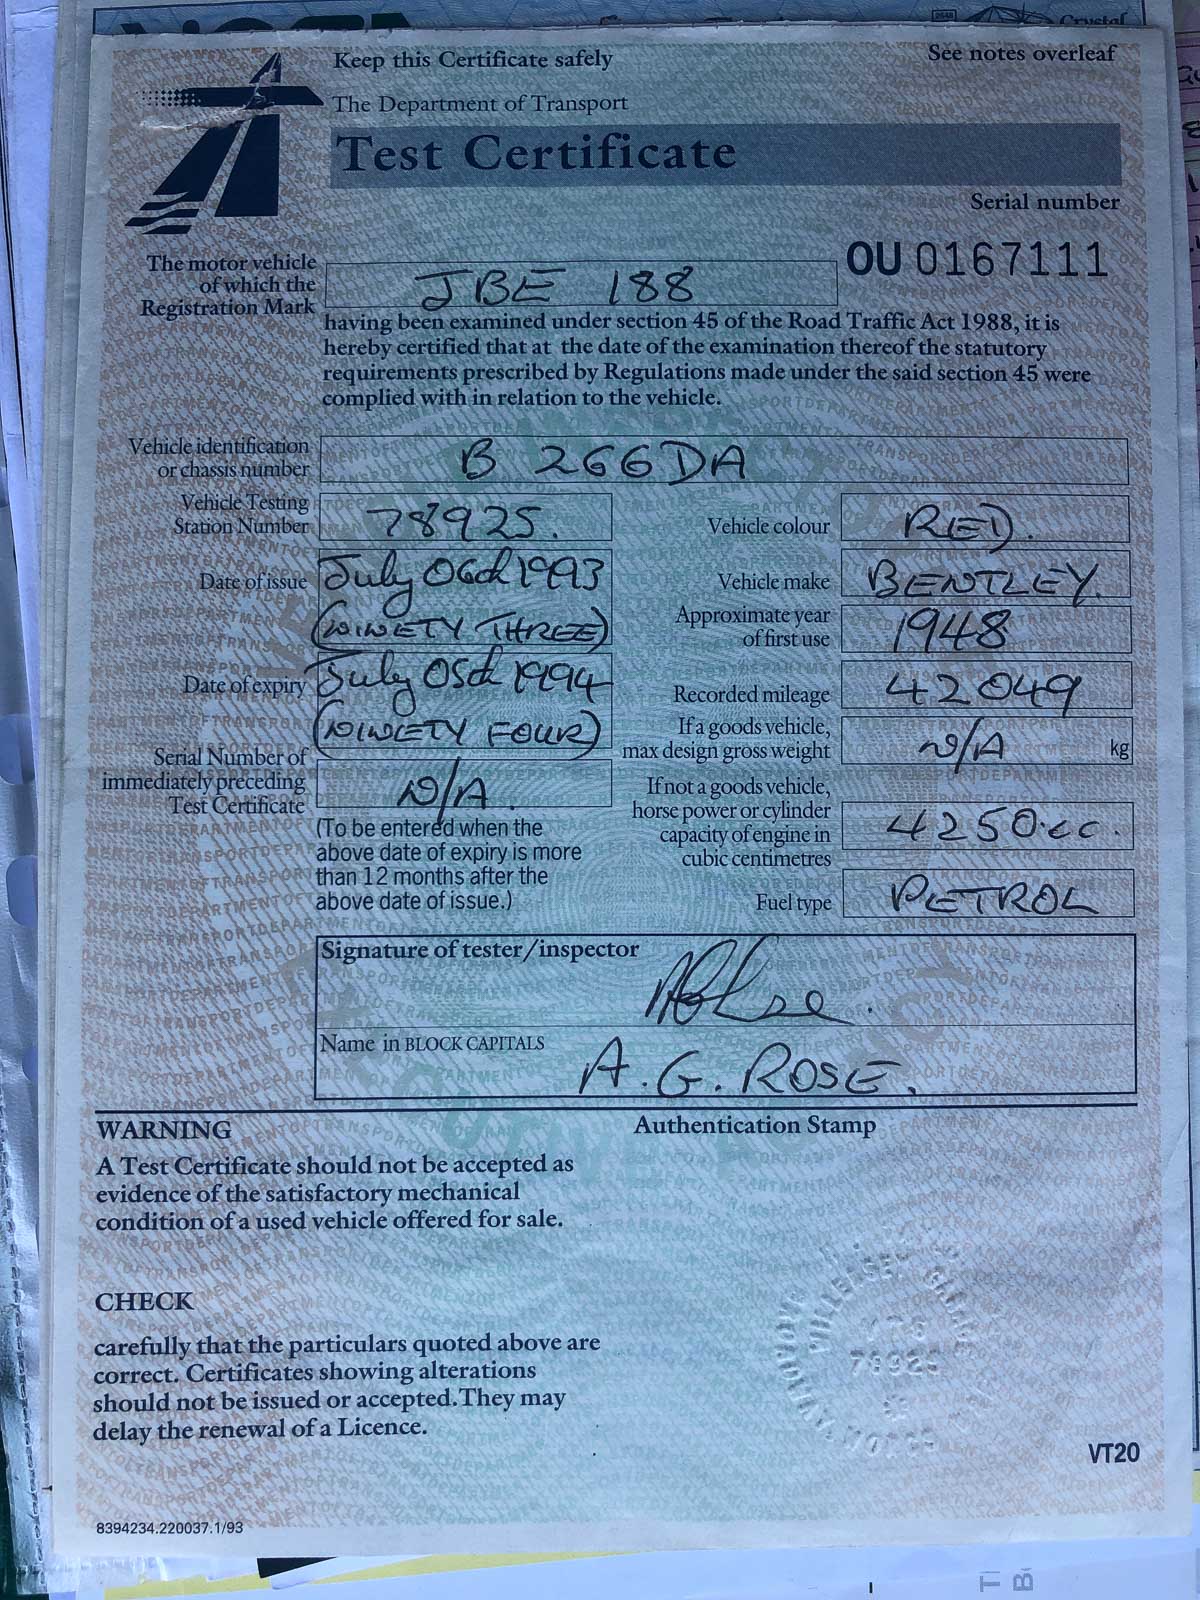 Crystal
Keep this Certificate safely
See notes overleaf
The Department of Transport
Test Certificate
Serial number
OU 0167111
The motor vehicle
of which the
Registration Mark
JBE 188
having been examined under section 45 of the Road Traffic Act 1988, it is
hereby certified that at the date of the examination thereof the statutory
requirements prescribed by Regulations made under the said section 45 were
complied with in relation to the vehicle.
Vehicle identification
or chassis number
B 266DA
Vehicle Testing
Station Number
78925.
Vehicle colour
RED.
Date of issue
July 06th 1993
(NINETY THREE)
Vehicle make
BENTLEY.
Approximate year
of first use
1948
Date of expiry
July 05th 1994
(NINETY FOUR)
Recorded mileage
42049
If a goods vehicle,
max design gross weight
N/A
kg
Serial Number of
immediately preceding
Test Certificate
N/A.
(To be entered when the
above date of expiry is more
than 12 months after the
above date of issue.)
If not a goods vehicle,
horse power or cylinder
capacity of engine in
cubic centimetres
4250.cc.
Fuel type
PETROL
Signature of tester/inspector
Name in BLOCK CAPITALS
A.G. ROSE.
WARNING
Authentication Stamp
A Test Certificate should not be accepted as
evidence of the satisfactory mechanical
condition of a used vehicle offered for sale.
CHECK
carefully that the particulars quoted above are
correct. Certificates showing alterations
should not be issued or accepted. They may
delay the renewal of a Licence.
78925
VT20
8394234.220037.1/93